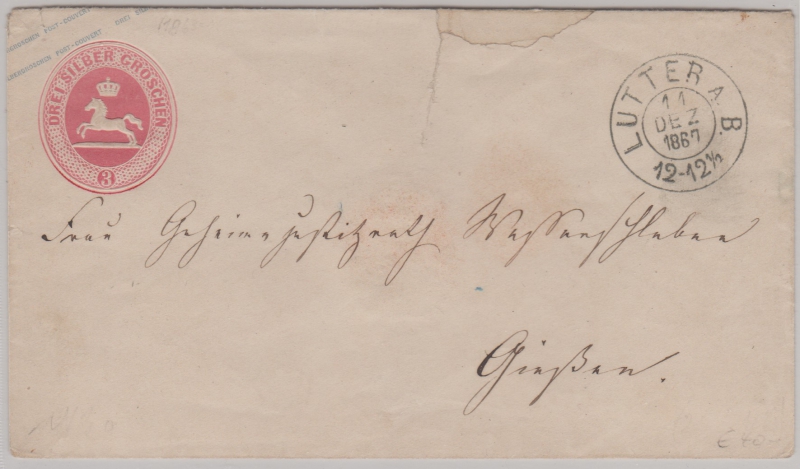 DREI SILBER GROSCHEN
3
LUTTER A. B.
11
DEZ
1867
12-12½
Frau Geheimejustizrath Wasserschleben
Gießen.
€ 40-